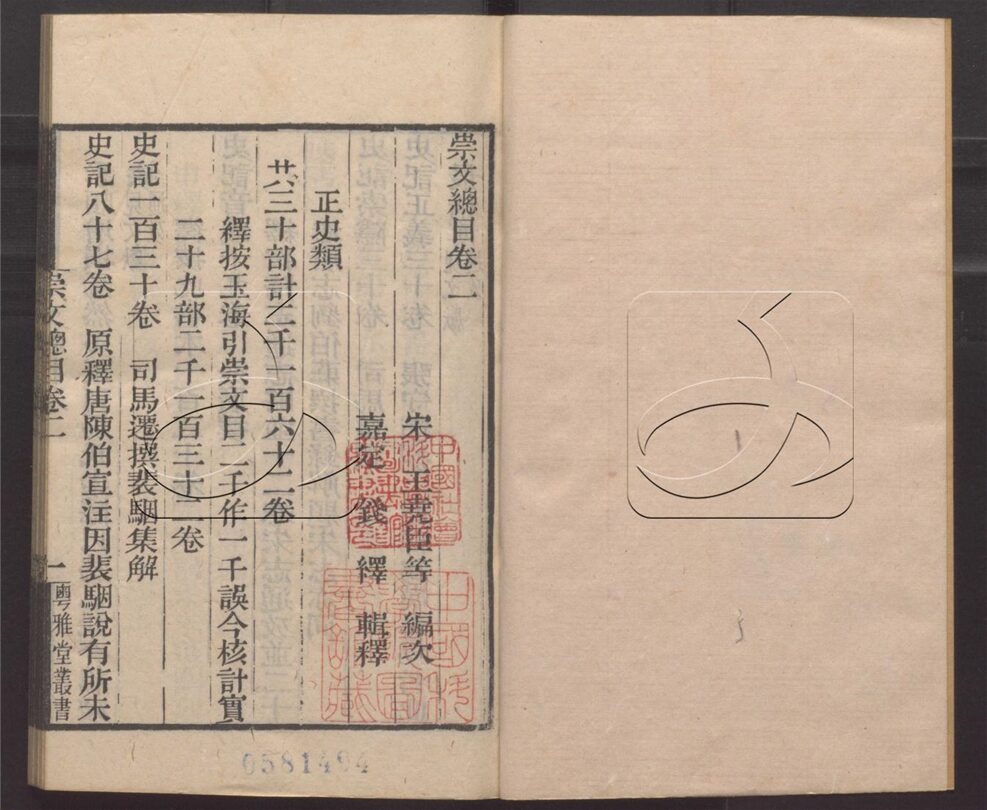 崇文總目卷二
宋 王堯臣等 編次
嘉定錢 繹 輯釋
正史類
共三十部計二千一百六十二卷
繹按玉海引崇文目二千作一千誤今核計實
二十九部二千一百三十二卷
史記一百三十卷 司馬遷撰裴駰集解
史記八十七卷 原釋唐陳伯宣注因裴駰說有所未
崇文總目卷二
一
粵雅堂叢書
0581494